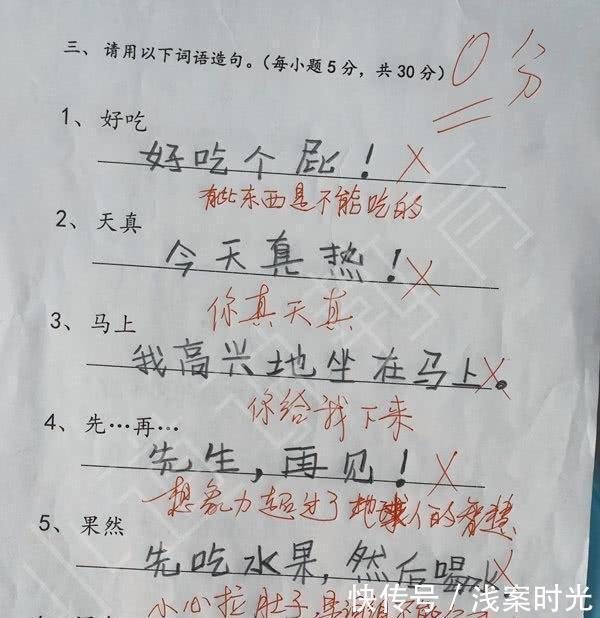 三、请用以下词语造句。(每小题5分，共30分)
0分
1、好吃
好吃个屁！
有些东西是不能吃的
2、天真
今天真热！
你真天真
3、马上
我高兴地坐在马上。
你给我下来
4、先…再…
先生，再见！
想象力超过了地球人的智慧
5、果然
先吃水果，然后喝水
小心拉肚子
快传号／浅案时光